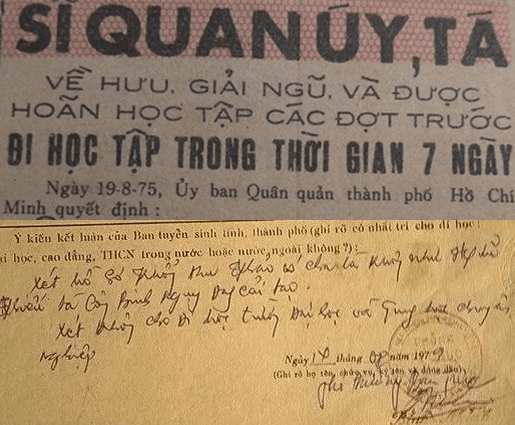 SĨ QUAN ÚY, TÁ
VỀ HƯU, GIẢI NGŨ, VÀ ĐƯỢC
HOÃN HỌC TẬP CÁC ĐỢT TRƯỚC
ĐI HỌC TẬP TRONG THỜI GIAN 7 NGÀY
Ngày 19-8-75, Ủy ban Quân quản thành phố Hồ Chí
Minh quyết định :
Ý kiến kết luận của Ban tuyển sinh tỉnh, thành phố (ghi rõ có nhất trí cho đi học :
ại học, cao đẳng, THCN trong nước hoặc nước ngoài không?) :
Xét hồ sơ Khổng Thu Thảo có cha là Khổng
là Công Binh Ngụy cải tạo.
Xét không cho đi học trường Đại học và Trung học chuyên
Nghiệp
Ngày 14 tháng 08 năm 1979
(Ghi rõ họ tên, chức vụ, ký tên và đóng dấu)